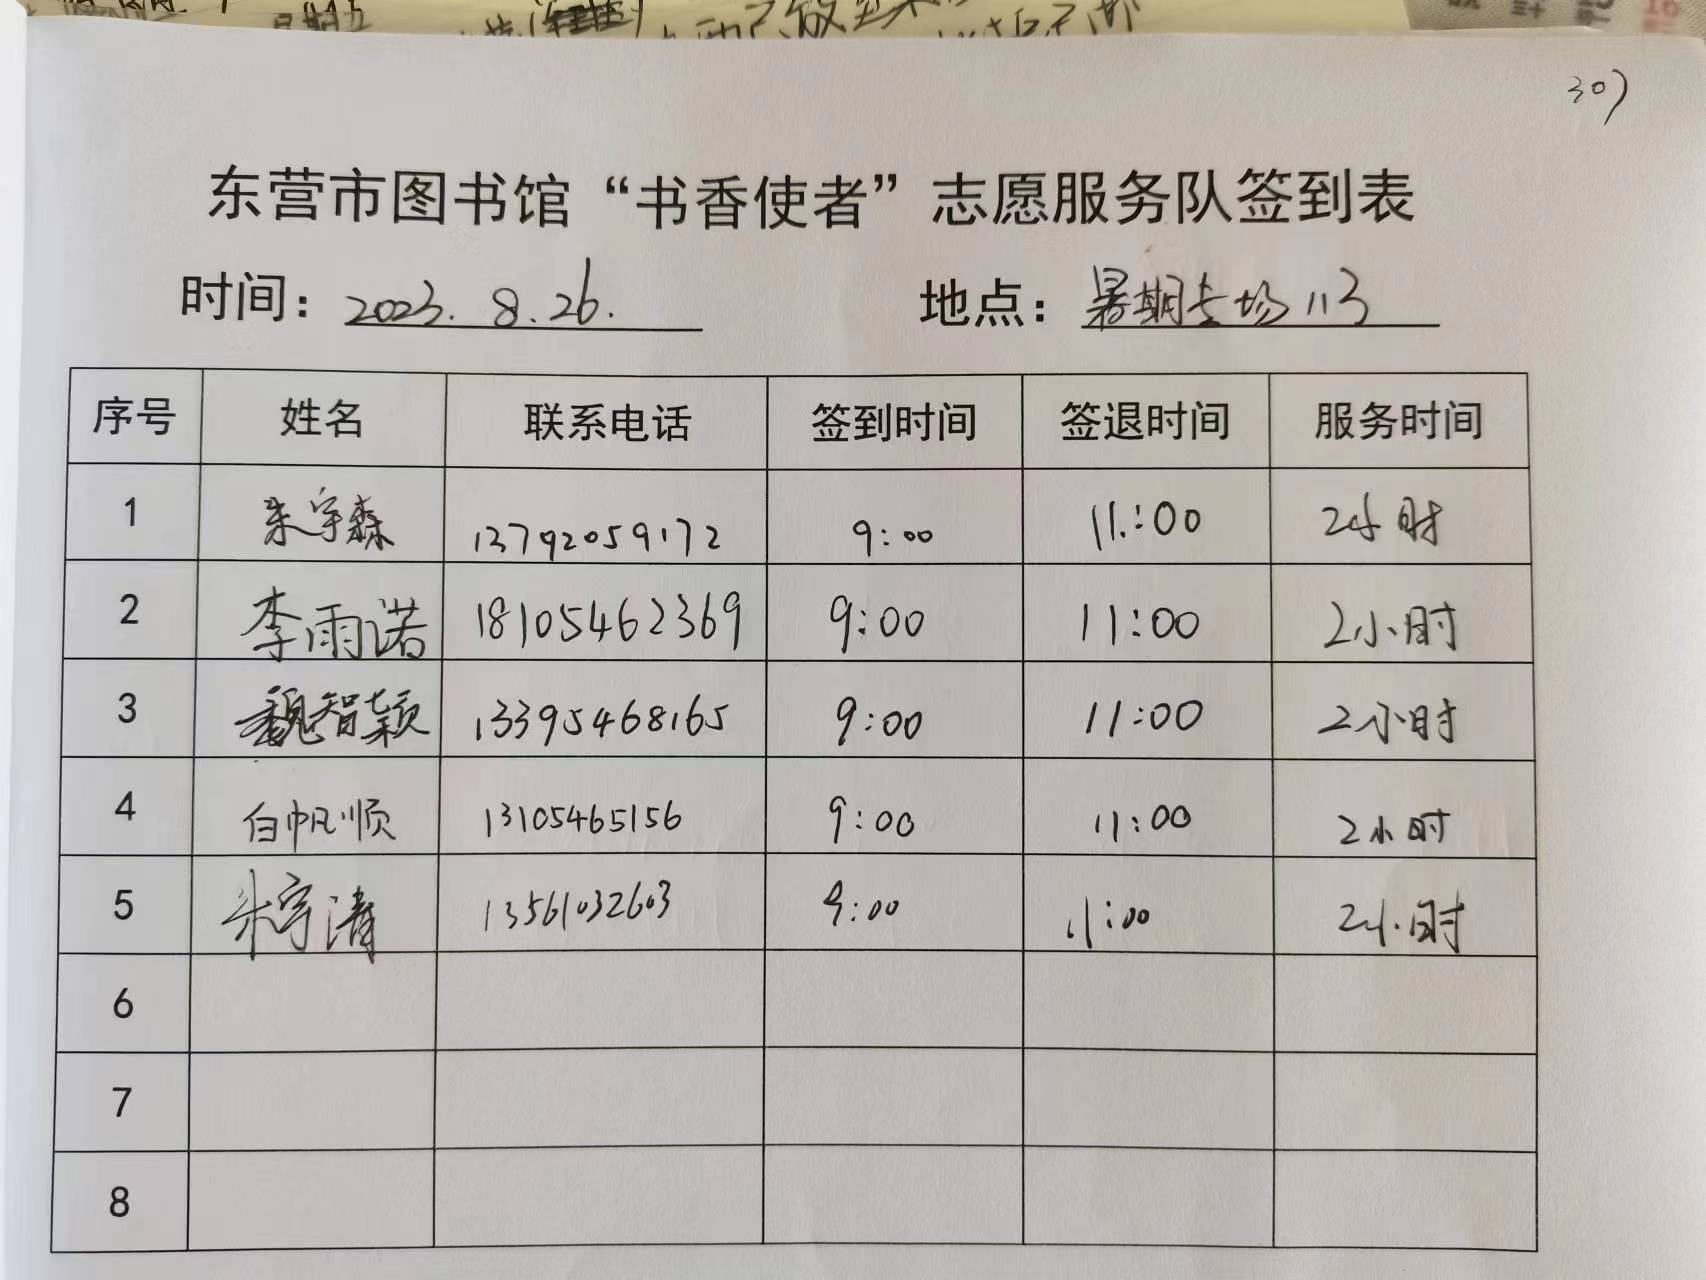 307
东营市图书馆“书香使者”志愿服务队签到表
时间：2023.8.26.
地点：暑期专场113
序号 姓名 联系电话 签到时间 签退时间 服务时间
1 朱宇森 13792059172 9:00 11:00 2小时
2 李雨诺 18105462369 9:00 11:00 2小时
3 魏智颖 13395468165 9:00 11:00 2小时
4 白帆顺 13105465156 9:00 11:00 2小时
5 朱宇清 13561032603 9:00 11:00 2小时
6
7
8